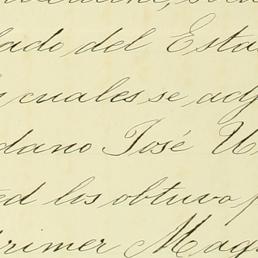 lado del Esta
cuales se adj
dano José U
ed los obtuvo p
rimer Mag